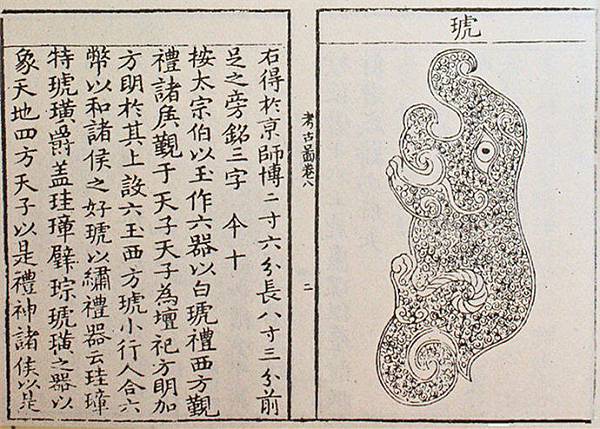 琥
考古圖卷八
二
右得於京師博二寸六分長八寸三分前
足之旁銘三字 今十
按太宗伯以玉作六器以白琥禮西方覲
禮諸侯覲于天子天子為壇祀方明加
方明於其上設六玉西方琥小行人合六
幣以和諸侯之好琥以繡禮器云珪璋
特琥璜爵盖珪璋璧琮琥璜之器以
象天地四方天子以是禮神諸侯以是